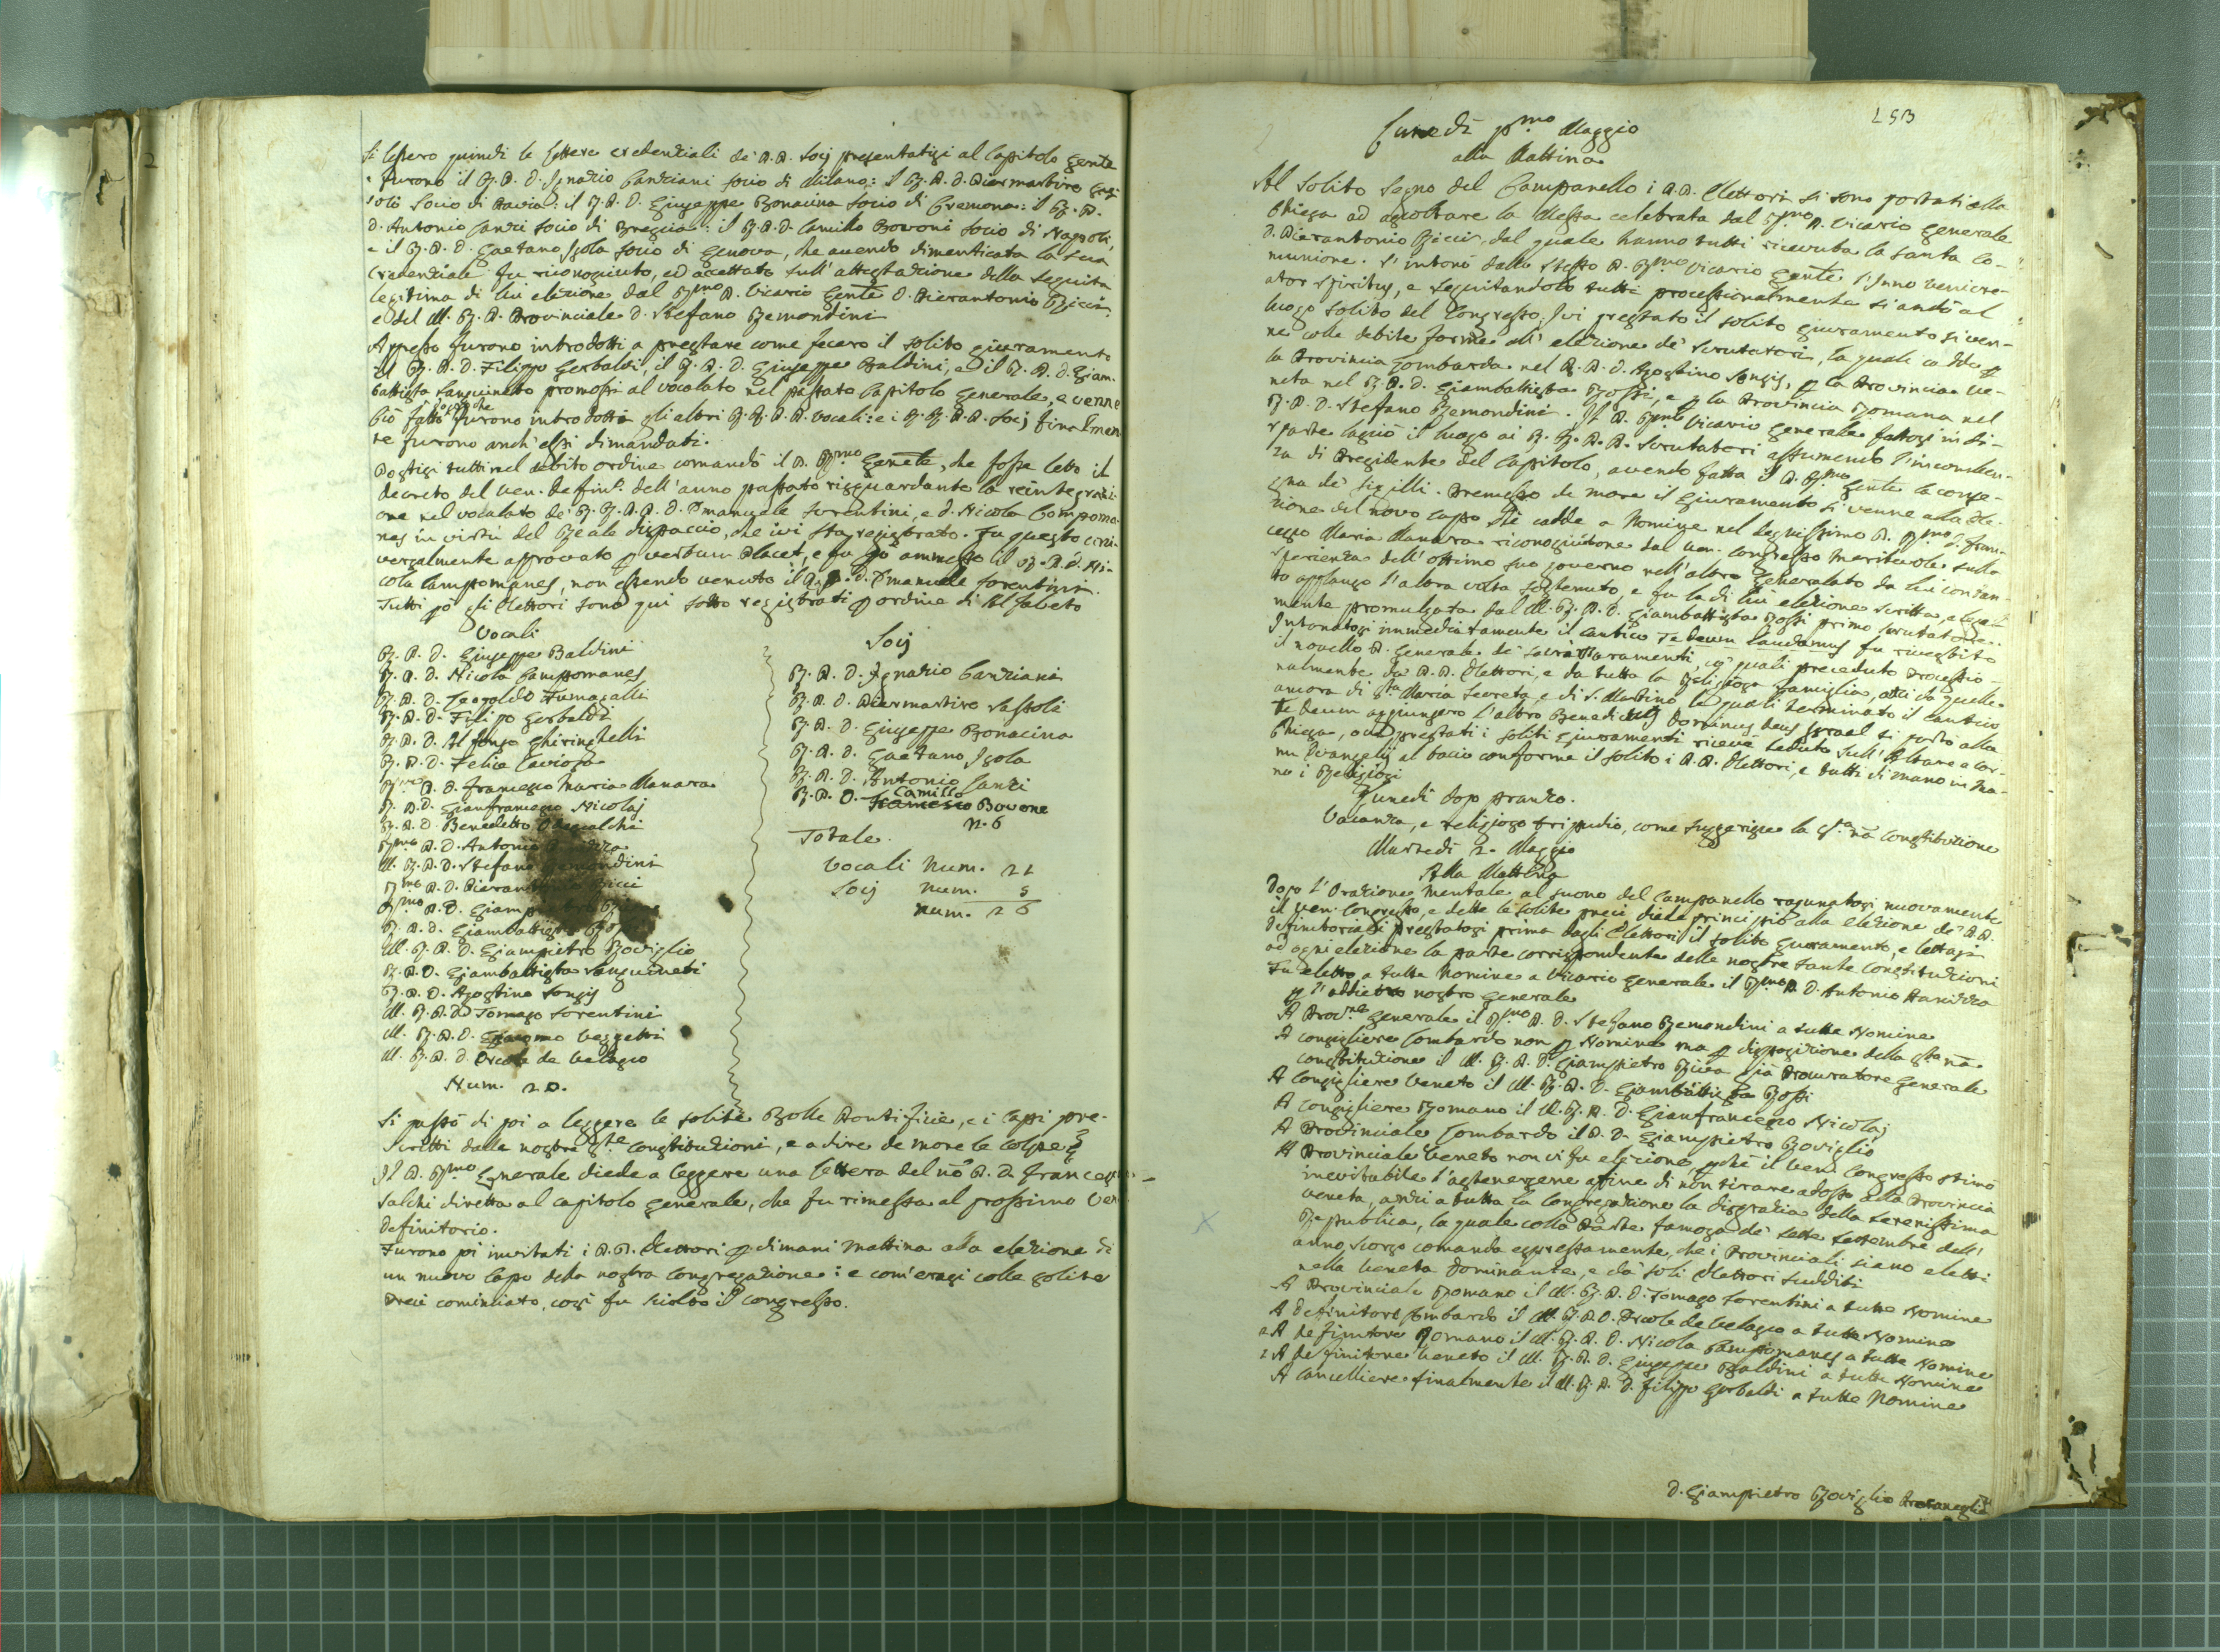 Si lessero quindi le lettere credenziali de' P.P. Socij presentatisi al Capitolo Gen̄te
e furono il R. P. D. Ignazio Canziani socio di Milano: il R. P. D. Piermartire
soli Socio di Pavia: il R. P. D. Giuseppe Bonacina socio di Cremona: il R. P.
D. Antonio Sanzi socio di Brescia: il R. P. D. Camillo Bovoni socio di Napoli,
e il R. P. D. Gaetano Isola socio di Genova, che avendo dimenticata la sua
Credenziale fu riconosciuto, ed accettato sull' attestazione della seguita
legitima di lui elezione dal Rmo P. Vicario Gen̄te D. Pierantonio Ricci,
e del M. R. P. Provinciale D. Stefano Remondini
Appresso furono introdotti a prestare come fecero il solito giuramento
il R. P. D. Filippo Gerbaldi, il R. P. D. Giuseppe Baldini, e il R. P. D. Giam-
battista Sanguineto promossi al vocalato nel passato Capitolo Generale, e venne
Ciò fatto furono introdotti gli altri R. R. P. P. Vocali: e i R. R. P. P. Socij finalmen
te furono anch' essi dimandati.
Postisi tutti nel debito ordine comandò il P. Rmo Gen̄te, che fosse letto il
decreto del Ven. Deffin.o dell' anno passato risguardante la reintegrazi-
one nel vocalato de' R. R. P. P. D. Emanuele Sorentini, e D. Nicola Campoma
nes in virtù del Reale dispaccio, che ivi sta registrato. Fu questo uni-
versalmente approvato p verbum Placet, e fu pò ammesso il R. P. D. Ni-
cola Campomanes, non essendo venuto il R. P. D. Emanuele Sorentini.
Tutti pò gli Elettori sono qui sotto registrati p ordine di Alfabeto
Vocali
R. P. D. Giuseppe Baldini
R. P. D. Nicola Campomanes
R. P. D. Leopoldo Fumagalli
R. P. D. Filippo Gerbaldi
R. P. D. Alfonso Ghiringhelli
R. P. D. Felice Cavioza
Rmo P. D. Francesco Maria Manara
R. P. D. Gianfrancesco Nicolaj
R. P. D. Benedetto Odescalchi
Rmo P. D. Antonio
M. R. P. D. Stefano Remondini
Rmo P. D. Pierantonio Ricci
Rmo P. D. Giampietro
R. P. D. Giambattista Rossi
M. R. P. D. Giampietro Roviglio
R. P. D. Giambattista Sanguineti
R. P. D. Agostino Songis
M. R. P. D. Tomaso Sorentini
M. R. P. D. Giacomo Vezzetti
M. R. P. D. Ercole de Velasco
Num. 20.
Socij
R. P. D. Ignazio Canziani
R. P. D. Piermartire Sassoli
R. P. D. Giuseppe Bonacina
R. P. D. Gaetano Isola
R. P. D. Antonio Sanzi
R. P. D. Camillo Bovone
N. 6
Totale
Vocali Num. 21
Socij num. 5
num. 26
Si passò di poi a leggere le solite Bolle Pontificie, e i Capi pre-
scritti dalle nostre Ste Constituzioni, e a dire de more le colpe
Il P. Rmo Generale diede a leggere una lettera del nō P. D. Francesco
Salchi diretta al capitolo generale, che fu rimessa al prossimo Ven
Definitorio.
Furono pi invitati i P. P. Elettori p dimani mattina alla elezione di
un nuovo Capo della nostra Congregazione: e com'erasi colle solite
Preci cominciato, così fu sciolto il congresso.
153
Lunedì pmo Maggio
alla Mattina
Al solito segno del Campanello i P. P. Elettori si sono portati alla
Chiesa ad ascoltare la Messa celebrata dal Rmo P. Vicario Generale
D. Pierantonio Ricci, dal quale hanno tutti ricevuta la Santa Co-
munione. S'intonò dallo stesso P. Rmo Vicario Gen̄te l'Inno Veni cre-
ator Spiritus, e seguitandolo tutti processionalmente si andò al
luogo solito del Congresso. Ivi prestato il solito giuramento si ven-
ne colle debite forme all' elezione de' Scrutatori, la quale cadde p
la Provincia Lombarda nel R. P. D. Agostino Songis, p la Provincia Ve-
neta nel R. P. D. Giambattista Rossi, e p la Provincia Romana nel
R. P. D. Stefano Remondini. Il P. Rmo Vicario Generale fattosi in di-
sparte lasciò il luogo ai R. R. P. P. Scrutatori assumendo l'incomben-
za di Presidente del Capitolo, avendo fatta il P. Rmo Gen̄te la conse-
gna de' sigilli. Premesso de more il Giuramento si venne alla Ele-
zione del novo capo che cadde a Nomine nel degnissimo P. Rmo D. Fran-
cesco Maria Manara riconosciutone dal Ven. Congresso meritevole sulla
sperienza dell' ottimo suo governo nell' altro Generalato da lui con tan-
to applauso l'altra volta sostenuto, e fu la di lui elezione scritta, e legal-
mente promulgata dal M. R. P. D. Giambattista Rossi primo scrutatore.
Intonatosi immediatamente il cantico Te Deum Laudamus fu rivestito
il novello P. Generale de' sacri Paramenti, co' quali preceduto processio-
nalmente da' P. P. Elettori, e da tutta la Religiosa famiglia, anzi da quelle
ancora di Sta Maria Secreta, e di S. Martino le quali terminato il cantico
Te Deum aggiunsero l'altro Benedictus Dominus Deus Israel si portò alla
Chiesa, ove prestati i soliti Giuramenti ricevè seduto sull' Altare a cor-
nu Evangelij al bacio conforme il solito i P. P. Elettori, e tutti di mano in ma-
no i Religiosi
Lunedì dopo pranzo.
Vacanza, e religioso tripudio, come suggerisce la Sta nā Constituzione
Martedì 2. Maggio
Alla Mattina
Dopo l'Orazione Mentale al suono del Campanello ragunatosi nuovamente
il Ven. Congresso, e dette le solite preci diede principio alla elezione de' P. P.
Definitoriali prestatosi prima dagli Elettori il solito giuramento, e lettasi
ad ogni elezione la parte corrispondente delle nostre sante Constituzioni
Fu eletto a tutte Nomine a Vicario Generale il Rmo P. D. Antonio Panizza
p l'addietro nostro Generale
A Provre Generale il Rmo P. D. Stefano Remondini a tutte Nomine
A consigliere Lombardo non p Nomine ma p disposizione della Sta nā
constituzione il M. R. P. D. Giampietro Riva già Procuratore Generale
A Consigliere Veneto il M. R. P. D. Giambattista Rossi
A Consigliere Romano il M. R. P. D. Gianfrancesco Nicolaj
A Provinciale Lombardo il P. D. Giampietro Roviglio
A Provinciale Veneto non vi fu elezione, pchè il Ven. Congresso stimò
inevitabile l'astenersene affine di non tirare adosso alla Provincia
Veneta, anzi a tutta la Congregazione la disgrazia della Serenissima
Republica, la quale colla Parte famosa de' sette Settembre dell'
anno scorso comanda espressamente, che i Provinciali siano eletti
nella Veneta Dominante, e da' soli Elettori sudditi
A Provinciale Romano il M. R. P. D. Tomaso Sorentini a tutte Nomine
A Definitore Lombardo il M. R. P. D. Ercole de Velasco a tutte Nomine
2 A Definitore Romano il M. R. P. D. Nicola Campomanes a tutte Nomine
1 A Definitore Veneto il M. R. P. D. Giuseppe Baldini a tutte Nomine
A Cancelliere finalmente il M. R. P. D. Filippo Gerbaldi a tutte Nomine
D. Giampietro Roviglio